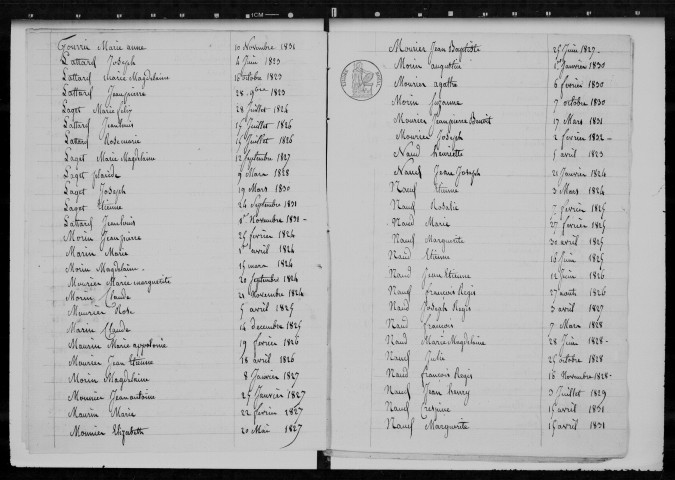 Tourrin Marie anne 10 Novembre 1831
Lattard Joseph 4 Juin 1823
Lattard Marie Magdelaine 16 octobre 1823
Lattard Jeanpierre 28 9bre 1823
Laget Marie 28 Juillet 1824
Lattard Jeanlouis 17 Juillet 1826
Lattard Rosemarie 15 Juillet 1826
Laget Marie Magdelaine 12 Septembre 1827
Laget placide 9 Mars 1828
Laget Joseph 19 Mars 1830
Laget Etienne 24 Septembre 1831
Lattard Jeanlouis 1er Novembre 1831 -
Morin Jeanpierre 25 fevrier 1824
Marin Marie 1er avril 1824
Morin Magdelaine . 15 mars 1824
Mourier Marie marguerite 20 Septembre 1824
Morin Claude 21 Novembre 1824
Mourier Rose 5 avril 1825
Marin Claude 14 decembre 1825
Maurin Marie appolonie 19 fevrier 1826
Mourier Jean Etienne 18 avril 1826
Morin Magdelaine 8 Janvier 1827
Mourier Jeanantoine 25 Janvier 1827
Maurin Marie 22 fevrier 1827
Mounier Elizabeth 20 Mai 1827
Mourier Jean Baptiste 25 Juin 1829 -
Morin augustin 1er Janvier 1830
Mourier agathe 6 fevrier 1830
Morin Suzanne 7 octobre 1830
Mourier Jeanpierre Benoit 17 Mars 1831
Mourier Joseph 2 fevrier 1832 -
Naud henriette 5 avril 1823
Naud Jean Joseph 21 Janvier 1824
Naud Etienne 3 Mars 1824
Naud Rosalie 7 fevrier 1825
Naud Marie 27 fevrier 1825
Naud Marguerite 30 avril 1825
Naud Etienne 16 Juin 1825
Naud Jean Etienne 12 Juin 1826
Naud francois Regis 27 aout 1826
Naud Joseph Regis 3 avril 1827
Naud francois 7 Mars 1828
Naud Marie Magdelaine 28 Juin 1828 -
Naud Julie 25 octobre 1828
Naud francois Regis 16 Novembre 1828 -
Naud Jean henry 3 Juillet 1829
Naud 15 avril 1831
Naud Marguerite 15 avril 1831